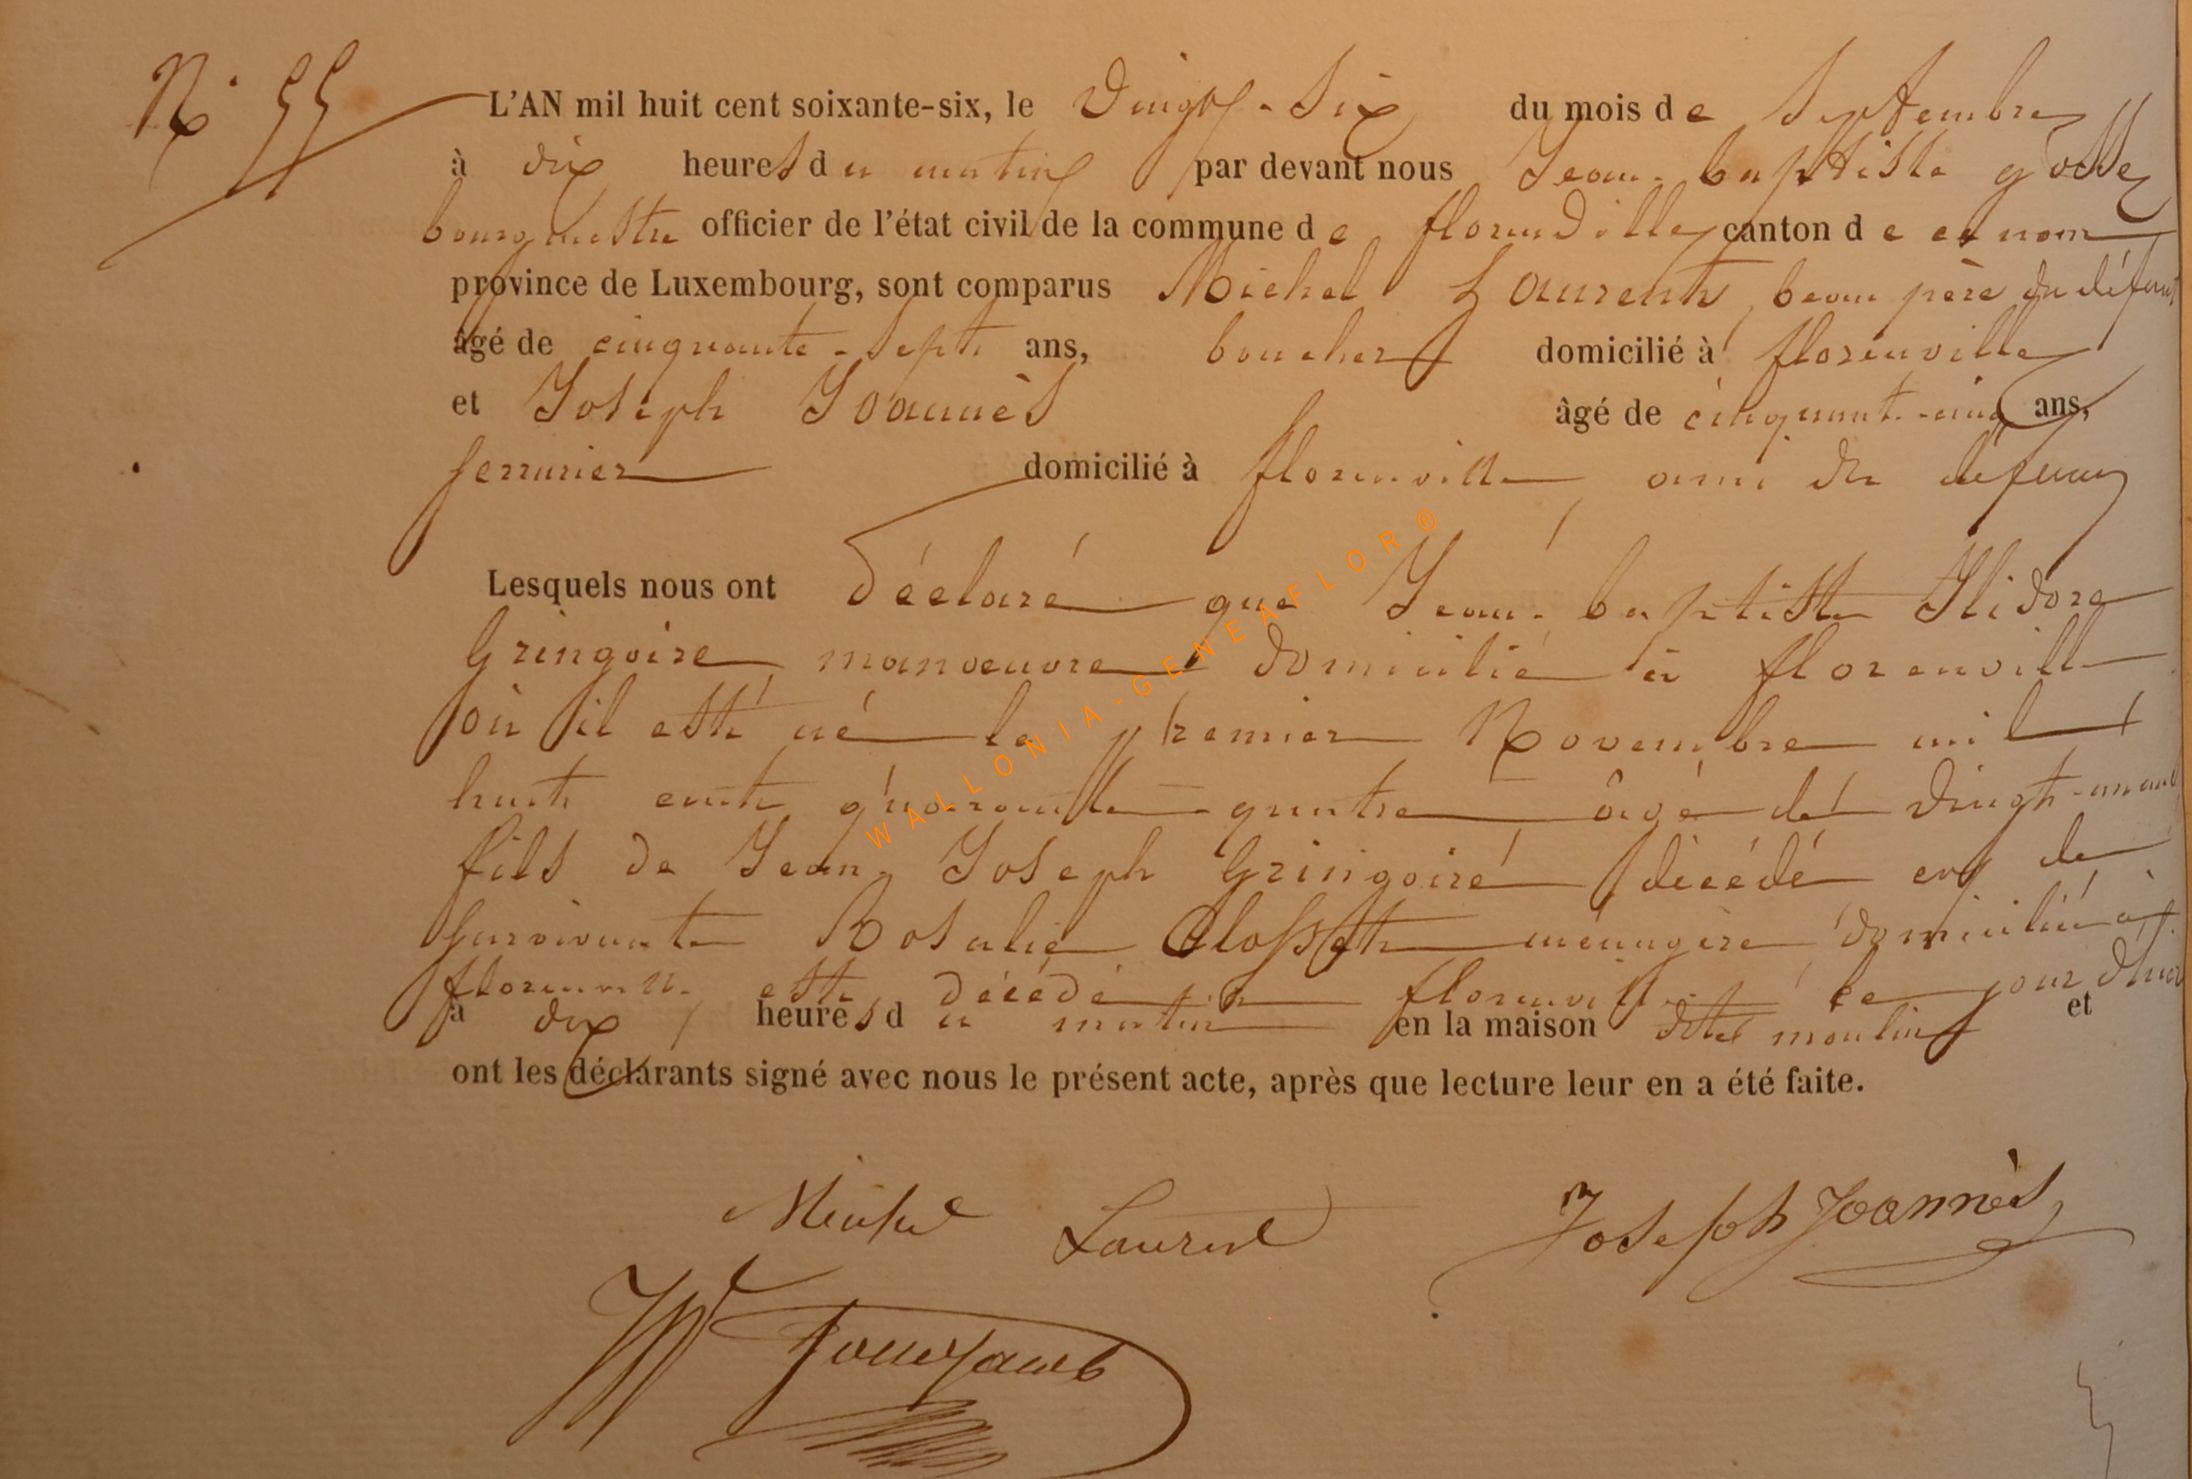 N° 55
L'AN mil huit cent soixante-six, le Vingt-Six du mois de Septembre
à dix heures du matin par devant nous Jean-baptiste gosse
bourgmestre officier de l'état civil de la commune de florenville canton de ce nom
province de Luxembourg, sont comparus Michel Laurent, beau père du défunt
âgé de cinquante-sept ans, boucher domicilié à florenville
et Joseph Joannès âgé de cinquant-cinq ans,
serrurier domicilié à florenville, ami du défunt
Lesquels nous ont déclaré que Jean-baptiste Isidore
Gringoire manoeuvre domicilié à florenville
où il est né le premier Novembre mil
huit cent quarante-quatre âgé de vingt-un ans
fils de Jean Joseph Gringoire décédé et de
survivante Rosalie Closset ménagère domiciliée à
florenville est décédé à florenville ce jour d'hui
à dix heures du matin en la maison dite moulin et
ont les déclarants signé avec nous le présent acte, après que lecture leur en a été faite.
Michel Laurent Joseph Joannès
WALLONIA-GENEAFLOR®